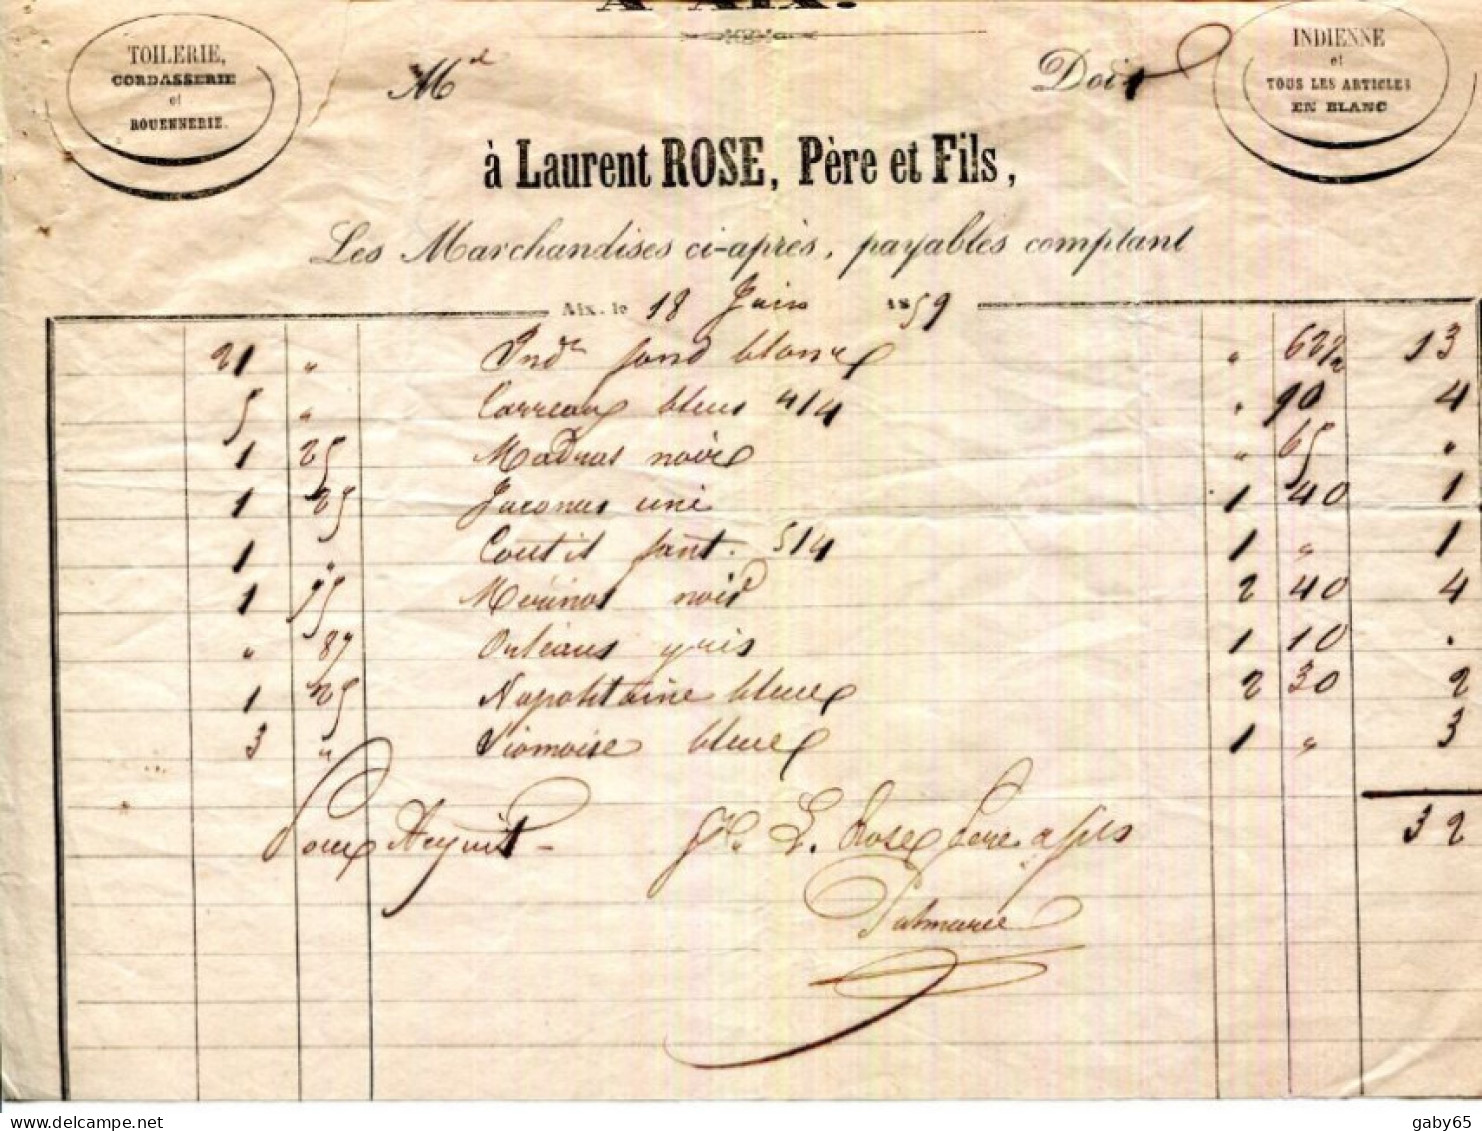 A AIX.
TOILERIE,
CORDASSERIE
et
ROUENNERIE.
INDIENNE
et
TOUS LES ARTICLES
EN BLANC
Md Doit
à Laurent ROSE, Père et Fils,
Les Marchandises ci-après, payables comptant
Aix, le 18 Juin 1859
21 " Indne fond blanc " 62 1/2 13
5 " Carreaux bleus 4/4 " 90 4
1 25 Madras noir " 65 "
1 25 Jaconas uni 1 40 1
1 " Coutil fant. 5/4 1 " 1
1 75 Mérinos noir 2 40 4
" 87 Orléans gris 1 10 "
1 25 Napolitaine bleue 2 30 2
3 " Siamoise bleue 1 " 3
32
Pour Acquit - L. Rose Père & fils
gaby65